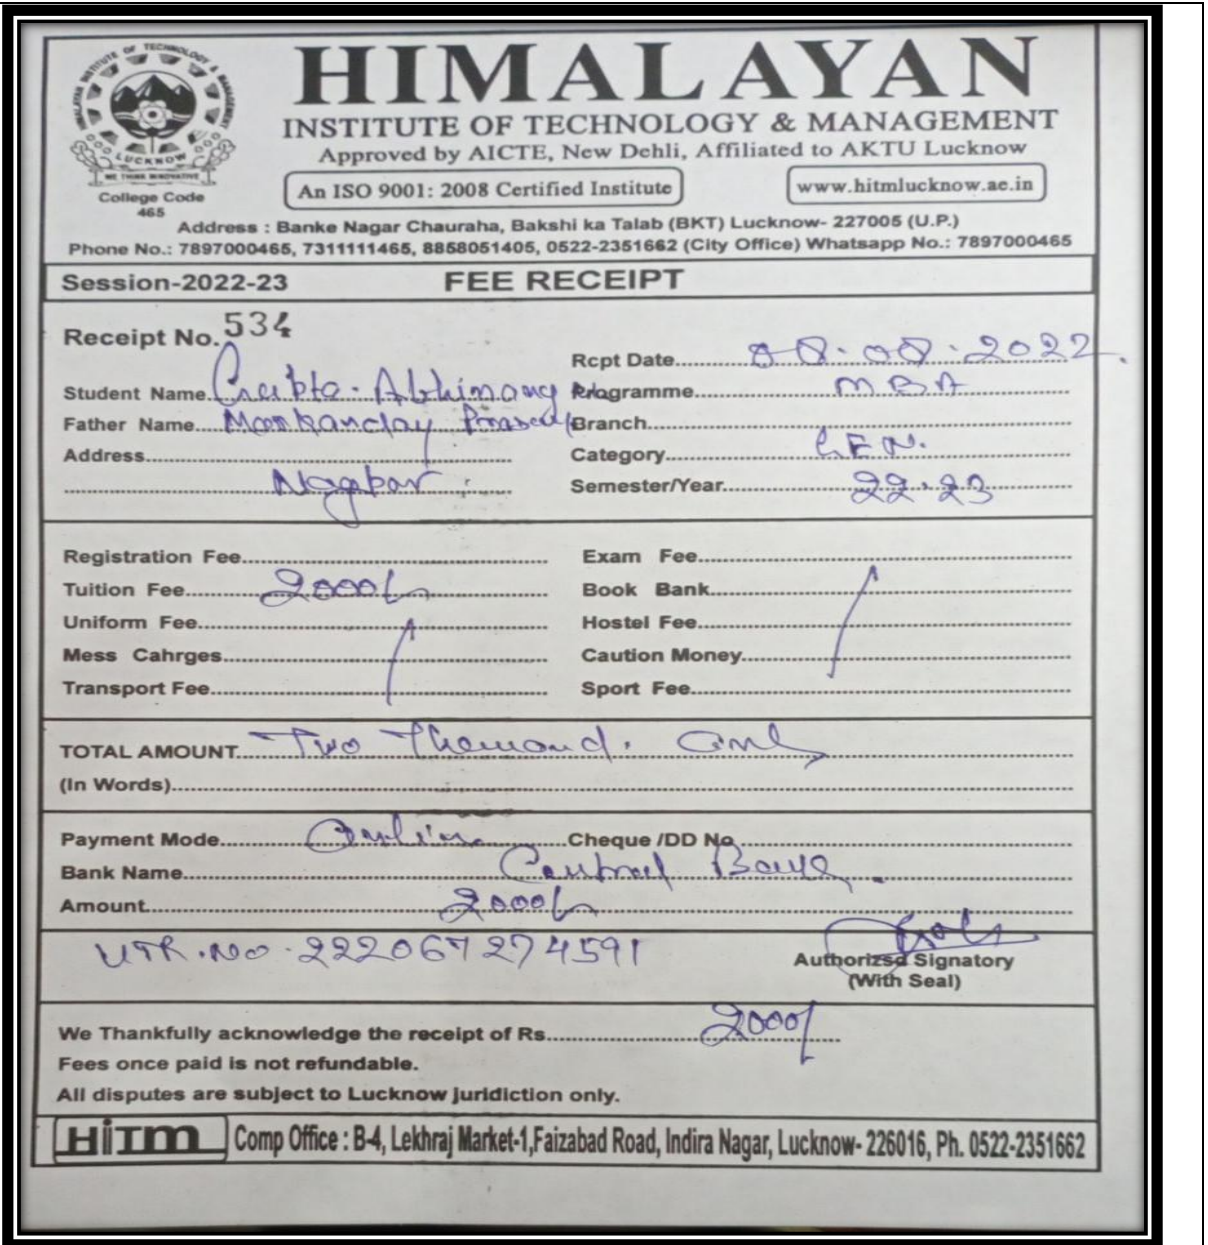 HIMALAYAN INSTITUTE OF TECHNOLOGY & MANAGEMENT
LUCKNOW
WE THINK INNOVATIVE
College Code
465
HIMALAYAN
INSTITUTE OF TECHNOLOGY & MANAGEMENT
Approved by AICTE, New Dehli, Affiliated to AKTU Lucknow
An ISO 9001: 2008 Certified Institute www.hitmlucknow.ac.in
Address : Banke Nagar Chauraha, Bakshi ka Talab (BKT) Lucknow- 227005 (U.P.)
Phone No.: 7897000465, 7311111465, 8858051405, 0522-2351662 (City Office) Whatsapp No.: 7897000465
Session-2022-23 FEE RECEIPT
Receipt No. 534
Rcpt Date 08.08.2022
Student Name Gupta Abhimanyu Programme MBA
Father Name Markanday Prasad Branch
Address Category GEN.
Semester/Year 22-23
Registration Fee Exam Fee
Tuition Fee 2000/- Book Bank
Uniform Fee Hostel Fee
Mess Cahrges Caution Money
Transport Fee Sport Fee
TOTAL AMOUNT Two Thousand. only
(In Words)
Payment Mode Online Cheque /DD No
Bank Name Central Bank.
Amount 2000/-
UTR.NO-222067274591
Authorizsd Signatory
(With Seal)
We Thankfully acknowledge the receipt of Rs 2000/
Fees once paid is not refundable.
All disputes are subject to Lucknow juridiction only.
HiTM Comp Office : B-4, Lekhraj Market-1,Faizabad Road, Indira Nagar, Lucknow- 226016, Ph. 0522-2351662